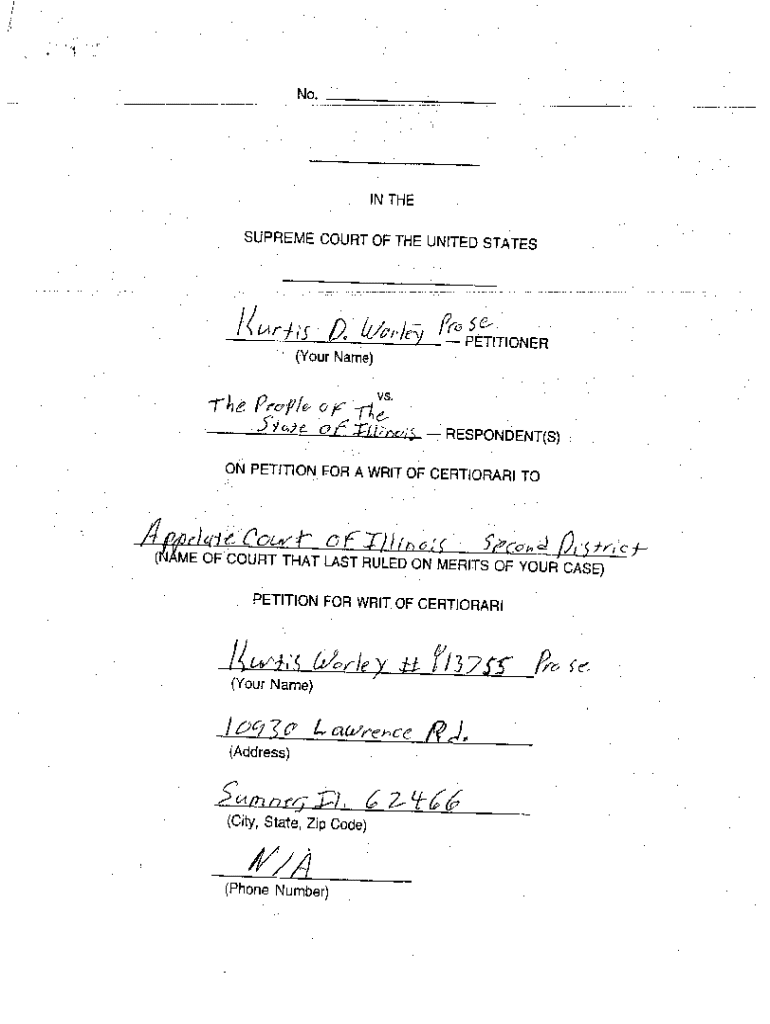 No.
IN THE
SUPREME COURT OF THE UNITED STATES
Kurtis D. Worley Pro se — PETITIONER
(Your Name)
vs.
The People of The
State of Illinois — RESPONDENT(S)
ON PETITION FOR A WRIT OF CERTIORARI TO
Appelate Court of Illinois Second District
(NAME OF COURT THAT LAST RULED ON MERITS OF YOUR CASE)
PETITION FOR WRIT OF CERTIORARI
Kurtis Worley # Y13755 Pro se
(Your Name)
10930 Lawrence Rd.
(Address)
Sumner, Il. 62466
(City, State, Zip Code)
N/A
(Phone Number)